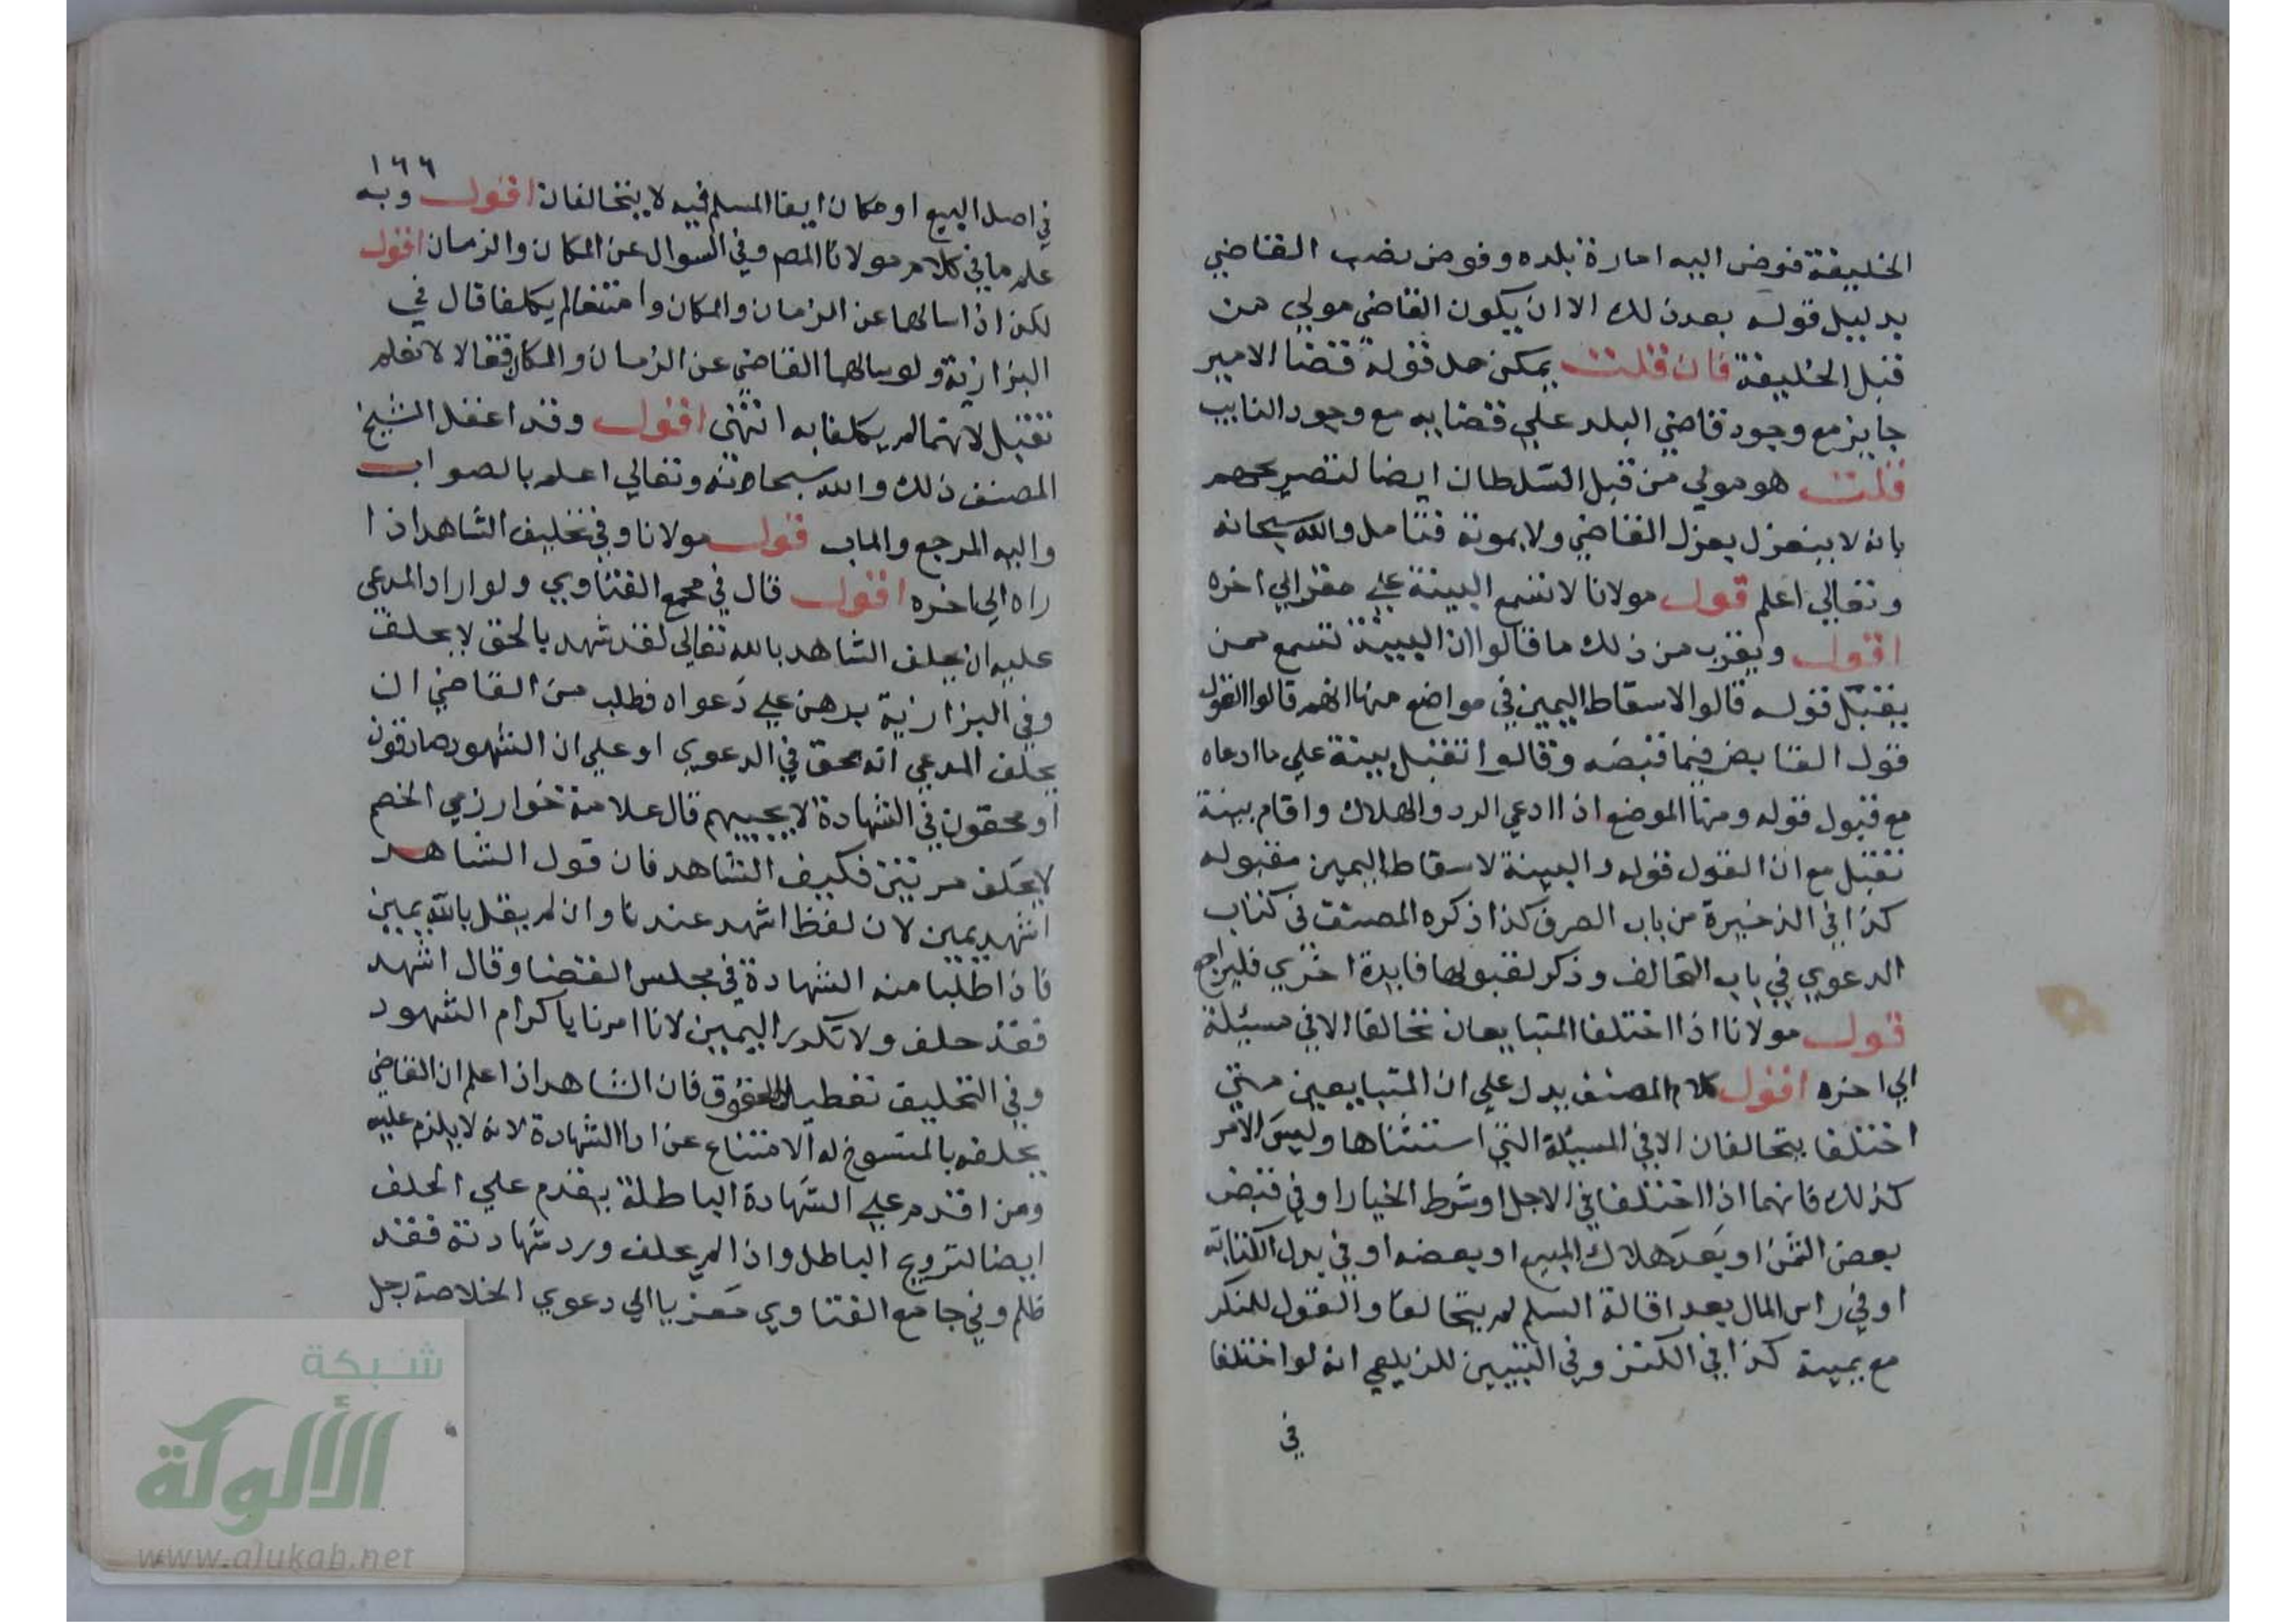 الخليفة فوض اليه امارة بلده وفوض نصب القاضي
بدليل قوله بعد ذلك الا ان يكون القاضي مولي من
قبل الخليفة فان قلت يمكن حمل قوله قضا الامير
جايز مع وجود قاضي البلد علي قضايه مع وجود النايب
قلت هو مولي من قبل السلطان ايضا لتصريحهم
بانه لا ينعزل بعزل القاضي ولا بموته فتامل والله سبحانه
وتعالي اعلم قول مولانا لا تسمع البينة علي مقر الي اخره
اقول ويقرب من ذلك ما قالوا ان البينة تسمع ممن
يقبل قوله قالوا لاسقاط اليمين في مواضع منها انهم قالوا القول
قول القابض فيما قبضه وقالوا تقبل بينة علي ما ادعاه
مع قبول قوله ومنها الموضع اذا ادعي الرد والهلاك واقام بينة
تقبل مع ان القول قوله والبينة لاسقاط اليمين مقبوله
كذا في الذخيرة من باب الصرف كذا ذكره المصنف في كتاب
الدعوي في باب التحالف وذكر لقبولها فايدة اخري فليراجع
قول مولانا اذا اختلفا المتبايعان تحالفا الا في مسئلة
الي اخره اقول كلام المصنف يدل علي ان المتبايعين متي
اختلفا يتحالفان الا في المسئلة التي استثناها وليس الامر
كذلك فانهما اذا اختلفا في الاجل او شرط الخيار او في قبض
بعض الثمن او بعد هلاك المبيع او بعضه او في بدل الكتابة
او في راس المال بعد اقالة السلم لم يتحالفا والقول للمنكر
مع يمينه كذا في الكنز وفي التبيين للزيلعي انه لو اختلفا
في
١٦٦
في اصل البيع او مكان ايفا المسلم فيه لا يتحالفان اقول وبه
علم ما في كلام مولانا المص وفي السوال عن المكان والزمان اقول
لكن اذا سالهما عن الزمان والمكان وامتنعا لم يكلفا قال في
البزازية ولو سالهما القاضي عن الزمان والمكان فقالا لا نعلم
تقبل لانهما لم يكلفا به انتهي اقول وقد اغفل الشيخ
المصنف ذلك والله سبحانه وتعالي اعلم بالصواب
واليه المرجع والماب قول مولانا وفي تحليف الشاهد اذا
راه الي اخره اقول قال في مجمع الفتاوي ولو اراد المدعي
عليه ان يحلف الشاهد بالله تعالي لقد شهد بالحق لا يحلف
وفي البزازية برهن علي دعواه فطلب من القاضي ان
يحلف المدعي انه محق في الدعوي او علي ان الشهود صادقون
او محقون في الشهادة لا يجيبهم قال علامة خوارزمي الخصم
لا يحلف مرتين فكيف الشاهد فان قول الشاهد
اشهد يمين لان لفظ اشهد عندنا وان لم يقل بالله يمين
فاذا طلبنا منه الشهادة في مجلس القضا وقال اشهد
فقد حلف ولا تكرر اليمين لانا امرنا باكرام الشهود
وفي التحليف تعطيل الحقوق فان الشاهد اذا علم ان القاضي
يحلفه بالمنسوخ له الامتناع عن ادا الشهادة لانه لا يلزم عليه
ومن اقدم علي الشهادة الباطلة يقدم علي الحلف
ايضا لترويج الباطل واذا لم يحلف ورد شهادته فقد
ظلم وفي جامع الفتاوي معزيا الي دعوي الخلاصة رجل
شبكة
الألوكة
www.alukah.net